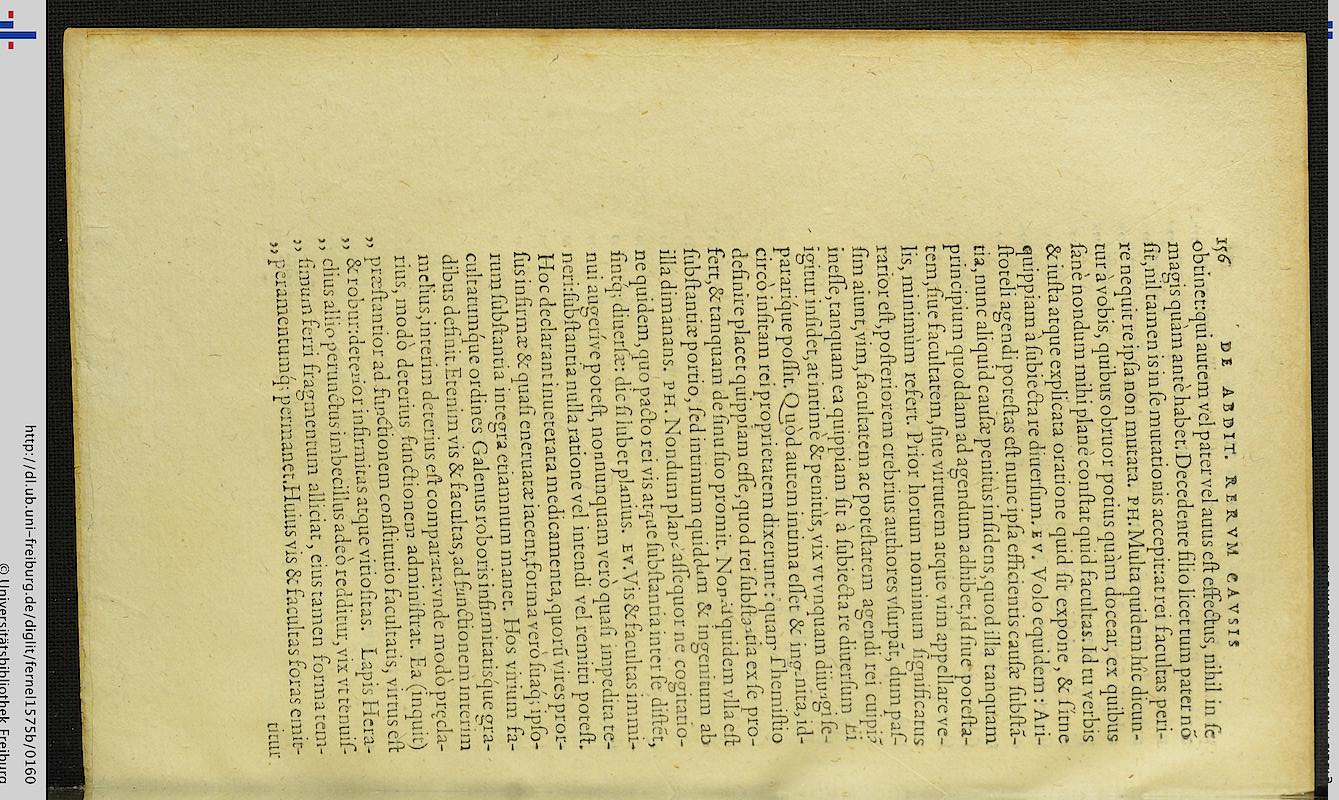 156 DE ABDIT. RERVM CAVSIS
obtinet: qui autem vel pater vel auus est effectus, nihil in se
magis quàm antè habet. Decedente filio licet tum pater nõ
sit, nil tamen is in se mutationis accepit: at rei facultas peri-
re nequit re ipsa non mutata. PH. Multa quidem hîc dicun-
tur à vobis, quibus obruor potius quàm docear, ex quibus
sanè nondum mihi planè constat quid facultas. Id tu verbis
& iusta atque explicata oratione quid sit expone, & sítne
quippiam à subiecta re diuersum. EV. Volo equidem: Ari-
stoteli agendi potestas est nunc ipsa efficientis causæ substã-
tia, nunc aliquid causæ penitùs insidens, quod illa tanquam
principium quoddam ad agendum adhibet, id siue potesta-
tem, siue facultatem, siue virtutem atque vim appellare ve-
lis, minimùm refert. Prior horum nominum significatus
rarior est, posteriorem crebrius authores vsurpãt, dum pas-
sim aiunt, vim, facultatem ac potestatem agendi rei cuipiã
inesse, tanquam ea quippiam sit à subiecta re diuersum. Ei
igitur insidet, at intimè & penitùs, vix vt vnquam diuulgi se-
pararíque possit. Quòd autem intima esset & ingenita, id-
circò insitam rei proprietatem dixerunt: quam Themistio
definire placet quippiam esse, quod rei substãtia ex se pro-
fert, & tanquam de sinu suo promit. Non quidem vlla est
substantiæ portio, sed intimum quiddam & ingenitum ab
illa dimanans. PH. Nondum planè assequor ne cogitatio-
ne quidem, quo pacto rei vis atque substantia inter se distét,
síntq; diuersæ: dic si lubet planius. EV. Vis & facultas immi-
nui augeríve potest, nonnunquam verò quasi impedita te-
neri: substantia nulla ratione vel intendi vel remitti potest.
Hoc declarant inueterata medicamenta, quorũ vires pror-
sus infirmæ & quasi eneruatæ iacent, forma verò suaq; ipso-
rum substantia integra etiamnum manet. Hos virium fa-
cultatúmque ordines Galenus roboris infirmitatísque gra-
dibus definit. Etenim vis & facultas, ad functionem interim
melius, interim deterius est comparata: vnde modò pręcla-
rius, modò deterius functionem administrat. Ea (inquit)
„ præstantior ad functionem constitutio facultatis, virtus est
„ & robur: deterior infirmitas atque vitiositas. Lapis Hera-
„ clius allio perunctus imbecillus adeò redditur, vix vt tenuis-
„ simam ferri fragmentum alliciat, eius tamen forma tem-
„ peramentumq; permanet. Huius vis & facultas foras emit-
titur
http://dl.ub.uni-freiburg.de/diglit/fernel1575b/0160
© Universitätsbibliothek Freiburg